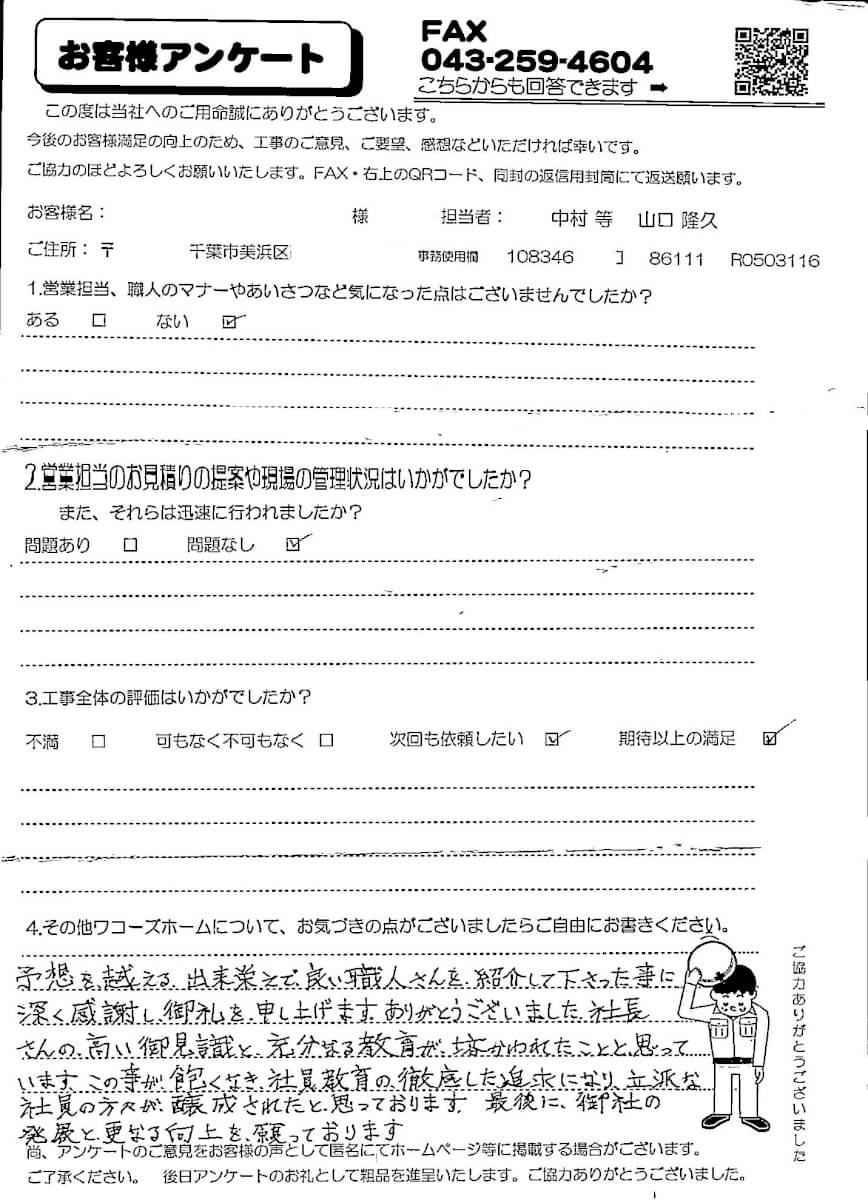 お客様アンケート
FAX
043-259-4604
こちらからも回答できます ➡
この度は当社へのご用命誠にありがとうございます。
今後のお客様満足の向上のため、工事のご意見、ご要望、感想などいただければ幸いです。
ご協力のほどよろしくお願いいたします。FAX・右上のQRコード、同封の返信用封筒にて返送願います。
お客様名: 様 担当者: 中村 等 山口 隆久
ご住所: 〒 千葉市美浜区 事務使用欄 108346 86111 R0503116
1.営業担当、職人のマナーやあいさつなど気になった点はございませんでしたか?
ある □ ない ☑
2.営業担当のお見積りの提案や現場の管理状況はいかがでしたか?
また、それらは迅速に行われましたか?
問題あり □ 問題なし ☑
3.工事全体の評価はいかがでしたか?
不満 □ 可もなく不可もなく □ 次回も依頼したい ☑ 期待以上の満足 ☑
4.その他ワコーズホームについて、お気づきの点がございましたらご自由にお書きください。
予想を越える、出来栄えで、良い職人さんを、紹介して下さった事に
深く感謝し、御礼を、申し上げます。ありがとうございました。社長
さんの、高い御見識と、充分なる教育が、培かわれたことと、思って
います。この事が、飽くなき、社員教育の、徹底した追求になり、立派な
社員の方々が、醸成されたと、思っております。最後に、御社の
発展と、更なる向上を、願っております
尚、アンケートのご意見をお客様の声として匿名にてホームページ等に掲載する場合がございます。
ご了承ください。 後日アンケートのお礼として粗品を進呈いたします。ご協力ありがとうございました。
ご協力ありがとうございました